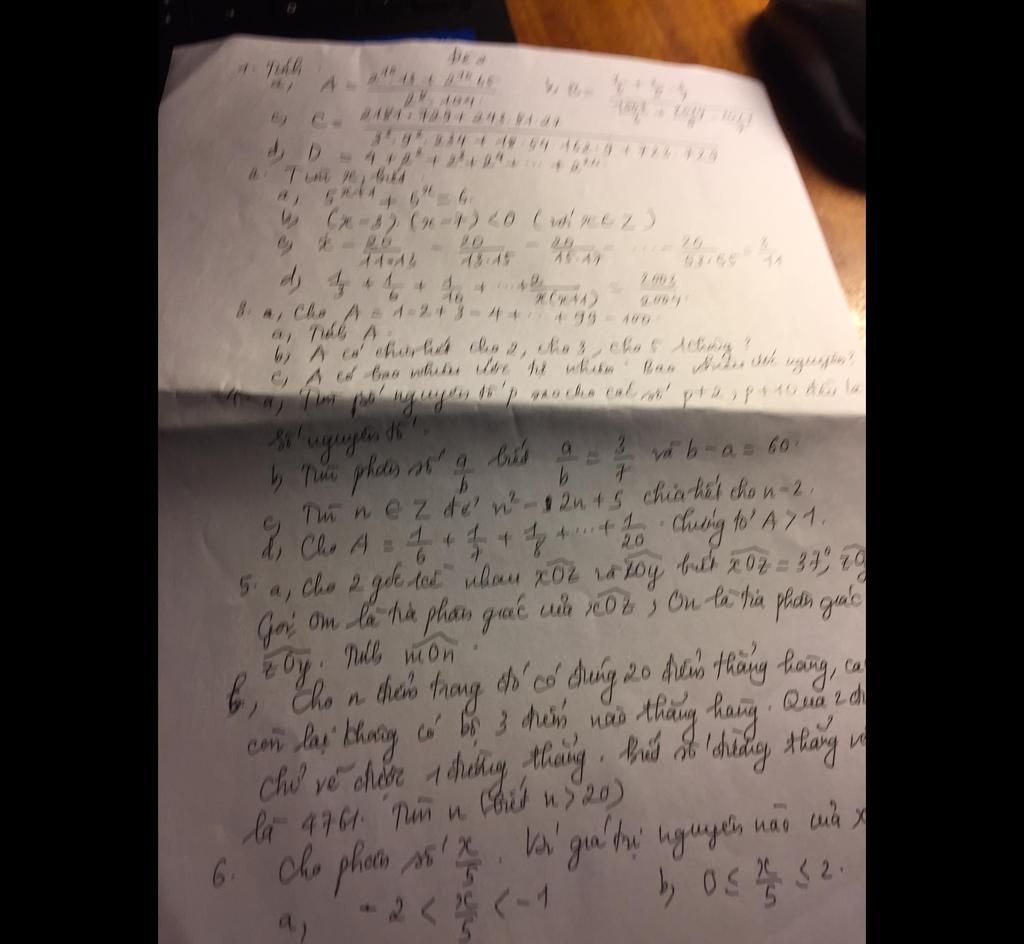 Đề 2
1. Tính
a, A = (2^10.13 + 2^10.65) / (2^8.104) b, B =
c, C = (2181.729 + 243.81.27) / (3^2.9^2.234 + 18.54.162.9 + 723.729)
d, D = 4 + 2^2 + 2^3 + 2^4 + ... +
2. Tìm x, biết
a, 5^(x+1) + 5^x = 6
b, (x-3).(x-7) < 0 (với x ∈ Z)
c, x - 20/(11.13) - 20/(13.15) - 20/(15.17) - ... - 20/(53.55) = 3/11
d, 1/3 + 1/6 + 1/10 + ... + 2/(x(x+1)) = 2003/2004
3. a, Cho A = 1-2+3-4+...+99-100
a, Tính A
b, A có chia hết cho 2, cho 3, cho 5 không?
c, A có bao nhiêu ước tự nhiên. Bao nhiêu ước nguyên?
4. a, Tìm số nguyên tố p sao cho các số p+2, p+10 đều là
số nguyên tố.
b, Tìm phân số a/b biết a/b = 3/7 và b-a = 60.
c, Tìm n ∈ Z để n² - 2n + 5 chia hết cho n-2.
d, Cho A = 1/6 + 1/7 + 1/8 + ... + 1/20. Chứng tỏ A > 1.
5. a, Cho 2 góc kề nhau xOz và zOy biết xOz = 37°, zO
Gọi Om là tia phân giác của xOz, On là tia phân giác
zOy. Tính mOn.
b, Cho n điểm trong đó có đúng 20 điểm thẳng hàng, cá
còn lại không có bộ 3 điểm nào thẳng hàng. Qua 2 đi
chỉ vẽ được 1 đường thẳng. Biết số đường thẳng vẽ
là 4761. Tìm n (biết n > 20)
6. Cho phân số x/5. Với giá trị nguyên nào của x
a, -2 < x/5 < -1 b, 0 ≤ x/5 ≤ 2.